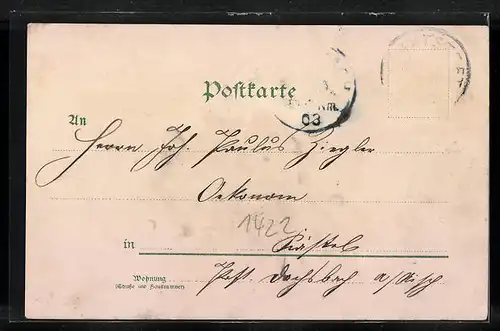 Postkarte
03
An
Herrn Joh. Paulus Ziegler
Oekonom
1422
in Kästel
Wohnung
(Straße und Hausnummer)
Post Dachsbach a/Aisch